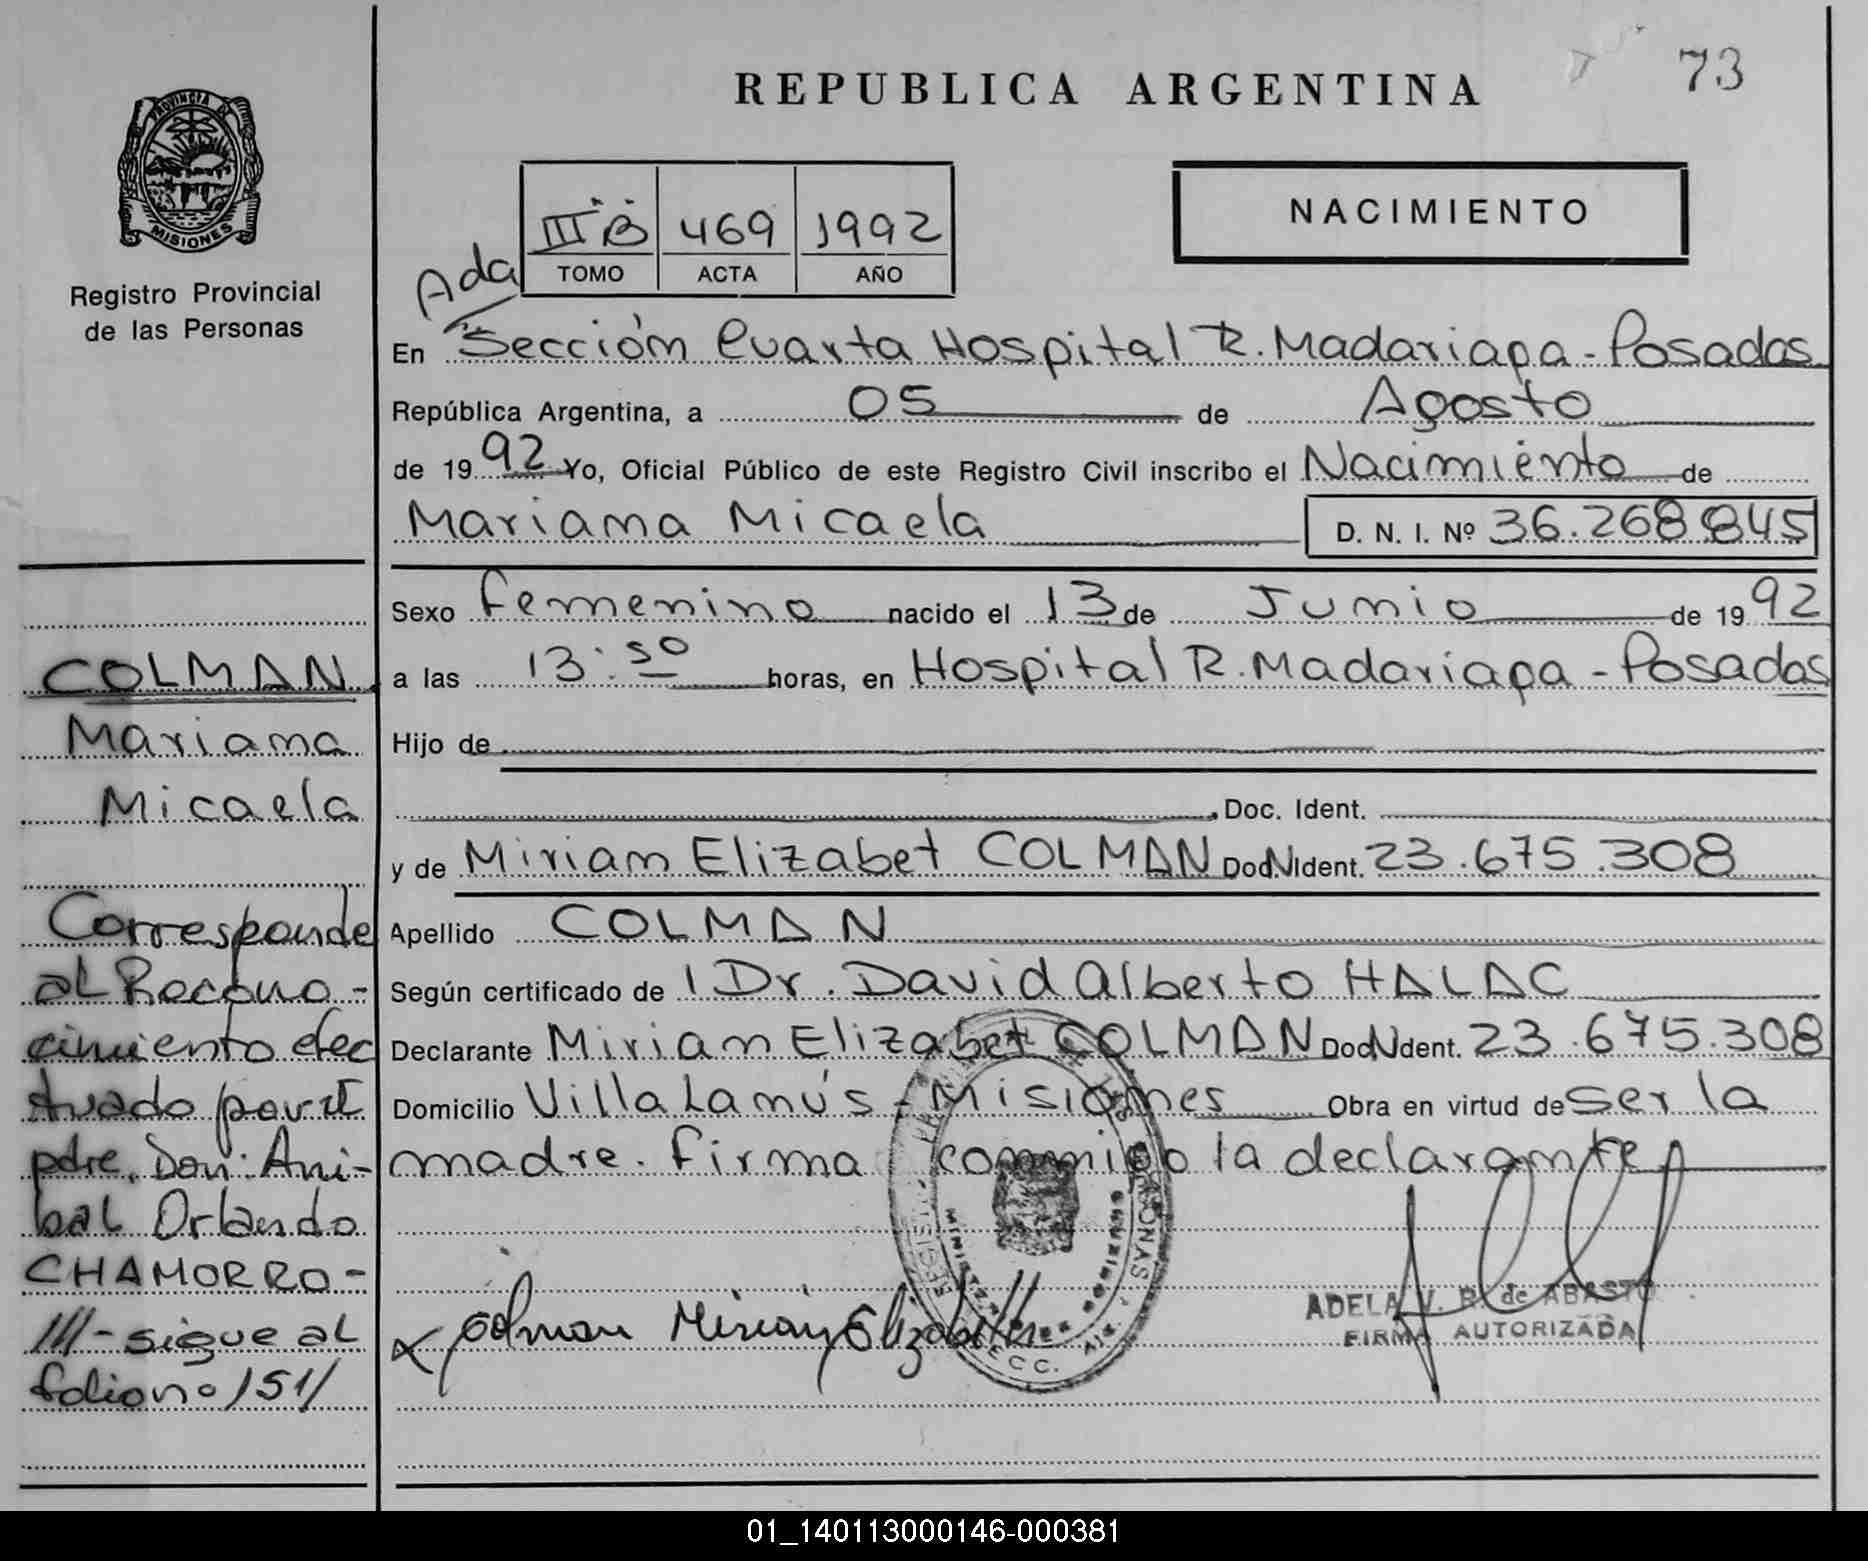 REPUBLICA ARGENTINA
73
PROVINCIA DE
MISIONES
Registro Provincial
de las Personas
III"B" 469 1992
TOMO ACTA AÑO
NACIMIENTO
Ada
En Sección Cuarta Hospital R. Madariaga - Posadas
República Argentina, a 05 de Agosto
de 1992 Yo, Oficial Público de este Registro Civil inscribo el Nacimiento de
Mariana Micaela D. N. I. Nº 36.268 845
Sexo femenino nacido el 13 de Junio de 1992
a las 13:30 horas, en Hospital R. Madariaga - Posadas
Hijo de
Doc. Ident.
y de Miriam Elizabet COLMAN Doc. Ident. 23.675.308
Apellido COLMAN
Según certificado de Dr. David Alberto HALAC
Declarante Miriam Elizabet COLMAN Doc. Ident. 23.675.308
Domicilio Villa Lanús - Misiones Obra en virtud de ser la
madre. firma conmigo la declarante
Colman Miriam Elizabeth
ADELA V. R. de ABASTO
FIRMA AUTORIZADA
COLMAN
Mariana
Micaela
Corresponde
al Recono-
cimiento efec
tuado por el
pdre. Don: Ani-
bal Orlando
CHAMORRO-
///- sigue al
folio nº 151/
01_140113000146-000381